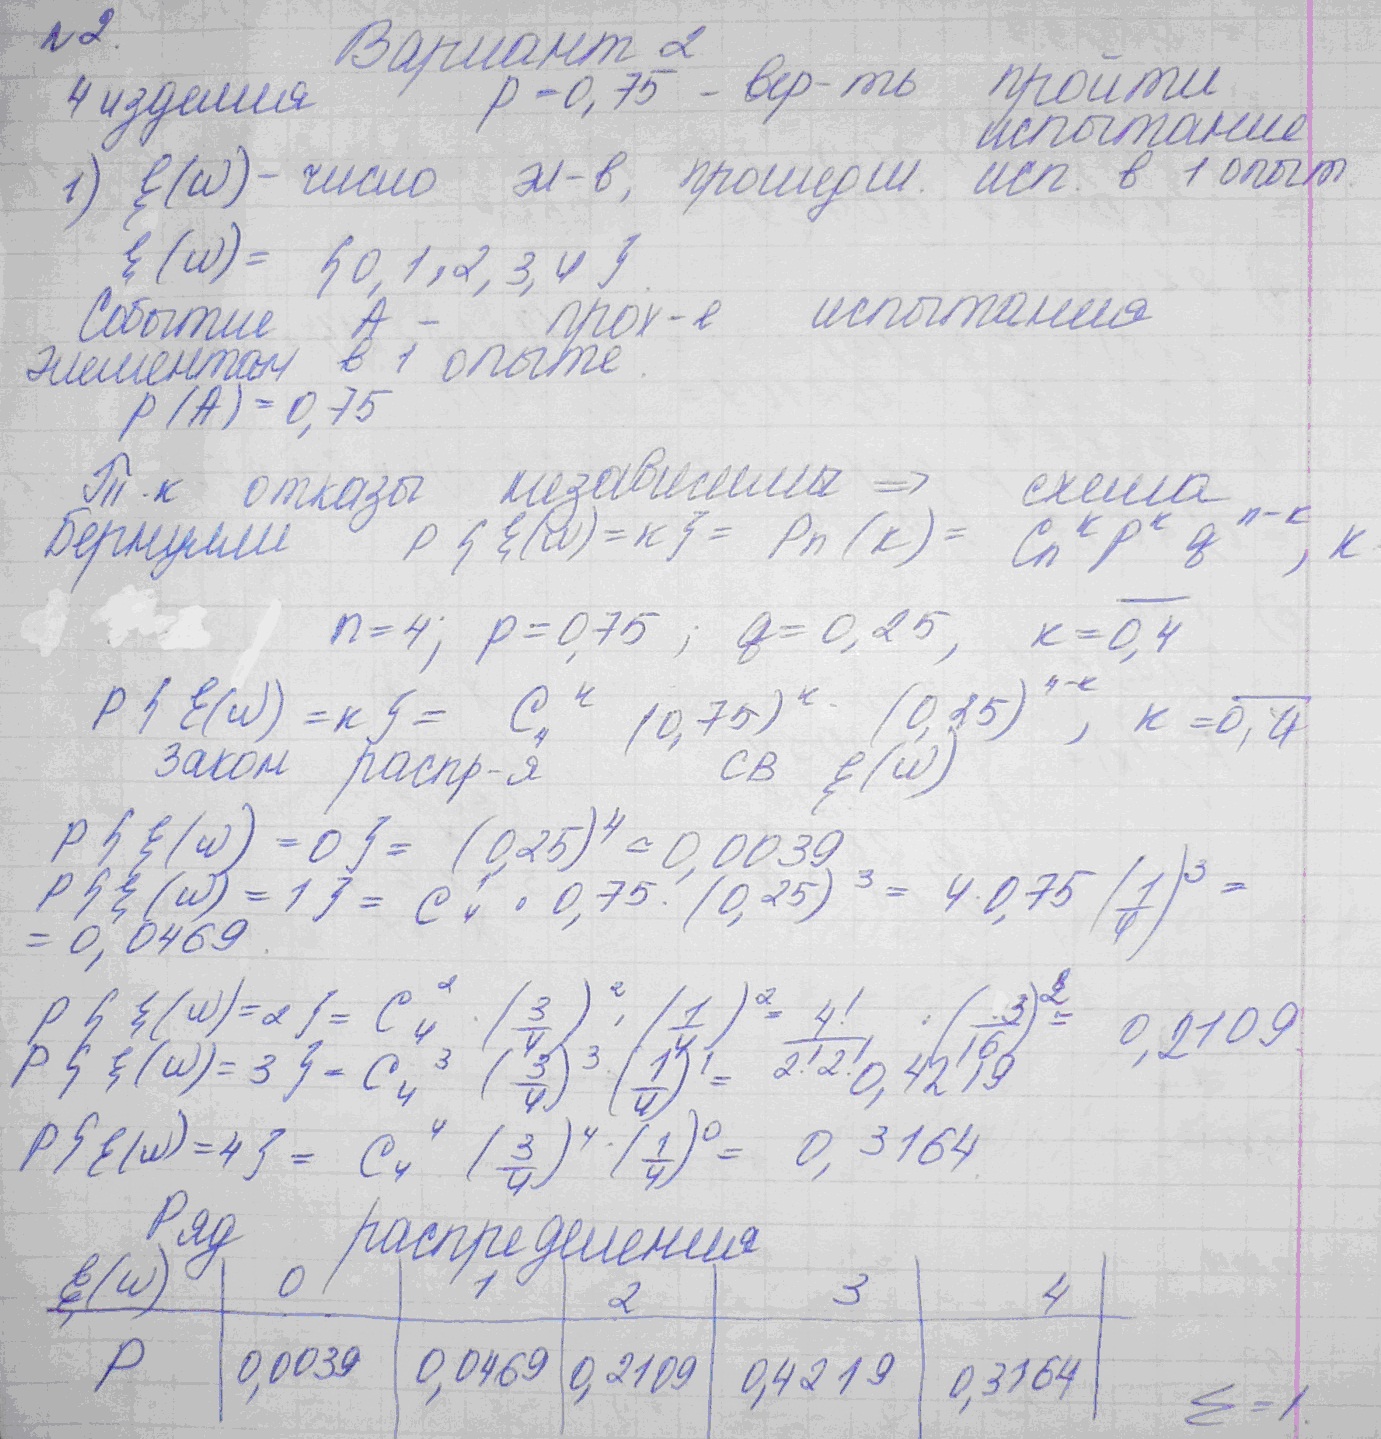 №2.
Вариант 2
4 изделия p = 0,75 - вер-ть пройти
испытание
1) ξ(ω) - число эл-в, прошедш. исп. в 1 опыт.
ξ(ω) = {0, 1, 2, 3, 4}.
Событие A - прох-е испытания
элементом в 1 опыте.
p(A) = 0,75
Т.к отказы независимы => схема
Бернулли P{ξ(ω)=k} = Pn(k) = Cn^k p^k q^n-k, k
n=4; p=0,75; q=0,25, k=0,4
P{ξ(ω)=k} = C4^k (0,75)^k · (0,25)^4-k, k=0,4
Закон распр-я СВ ξ(ω)
P{ξ(ω)=0} = (0,25)^4 = 0,0039
P{ξ(ω)=1} = C4^1 · 0,75 · (0,25)^3 = 4·0,75 (1/4)^3 =
= 0,0469.
P{ξ(ω)=2} = C4^2 · (3/4)^2 · (1/4)^2 = 4!/2!2! · (3/16)^2 = 0,2109
P{ξ(ω)=3} = C4^3 (3/4)^3 · (1/4)^1 = 0,4219
P{ξ(ω)=4} = C4^4 (3/4)^4 · (1/4)^0 = 0,3164
Ряд распределения
ξ(ω) 0 1 2 3 4
P 0,0039 0,0469 0,2109 0,4219 0,3164
Σ=1.